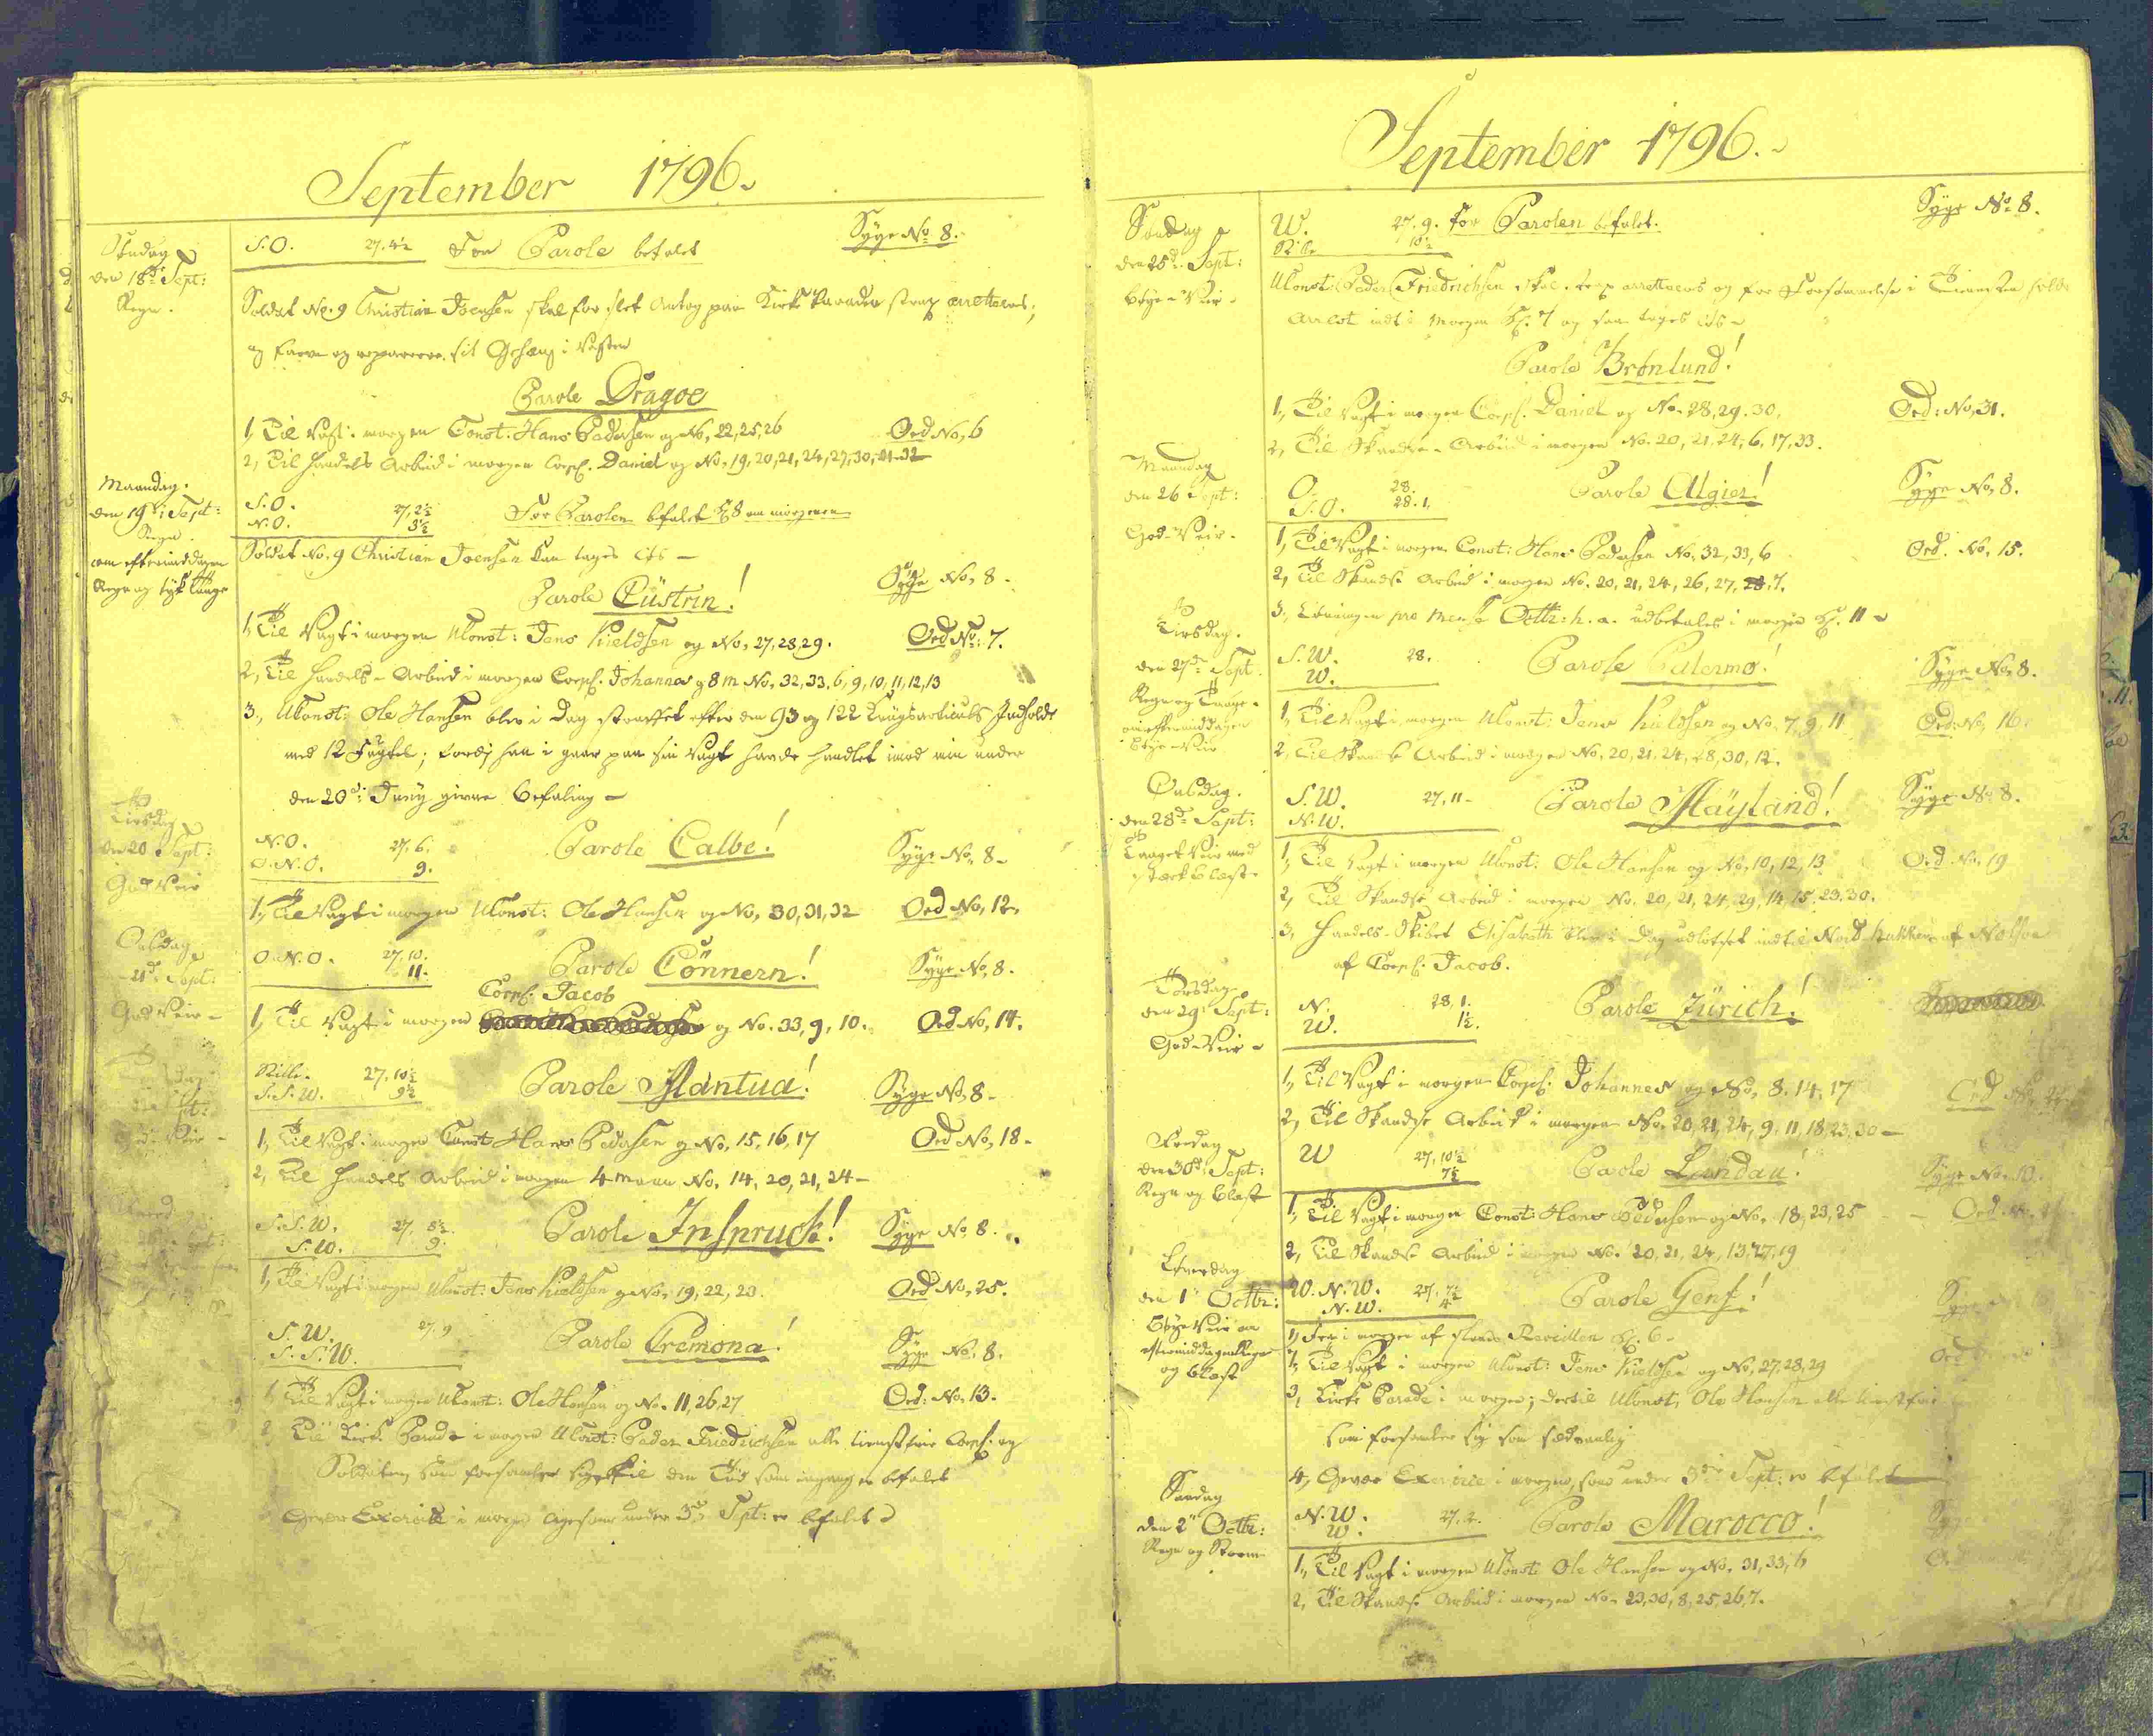 September 1796.
Søndag
den 18de Sept:
Regn.
S.O. 27.4½ For Parole befalet Syge No 8.
Soldat No. 9 Christian Joensen skal for slet Antog paa Kirke Paraden strax arretteres,
og farve og reparere sit Gehæng i Vagten
Parole Dragoe
1, Til Vagt i morgen Const: Hans Pedersen og No, 22, 25, 26 Ord No, 6
2, Til Handels Arbeid i morgen Corpl. Daniel og No, 19, 20, 21, 24, 27, 30, 31-32
Maandag.
den 19de Sept:
om eftermiddagen
Regn og tyk Taage
S.O. 27, 2½
N.O. 3½
For Parolen befalet Kl 8 om morgenen
Soldat No. 9 Christian Joensen kan tages løs –
Parole Cüstrin! Syge No, 8.
1, Til Vagt i morgen UConst: Jens Kieldsen og No, 27, 28, 29. Ord No: 7.
2, Til Handels-Arbeid i morgen Corpl. Johannes og 8 m No, 32, 33, 6, 9, 10, 11, 12, 13
3, UConst: Ole Hansen blev i Dag straffet efter den 93 og 122 Krigsarticuls Indhold
med 12 Fugtel; fordi han i gaar paa sin Vagt havde handlet imod min under
den 20de Juny givne Befaling –
Tirsdag
den 20 Sept:
God Veir
N.O. 27, 6.
O.N.O. 9.
Parole Calbe! Syge No, 8-
1, Til Vagt i morgen UConst: Ole Hansen og No, 30, 31, 32 Ord No, 12,
Onsdag
21de Sept:
God Veir-
O.N.O. 27, 10.
11.
Parole Cönnern! Syge No, 8.
Corpl. Jacob
1, Til Vagt i morgen og No. 33, 9, 10. Ord No, 14.
God Veir-
Stille. 27, 10½
S.S.W. 9½
Parole Mantua! Syge No, 8-
1, Til Vagt i morgen Const Hans Pedersen og No, 15, 16, 17 Ord No, 18-
2, Til Handels Arbeid i morgen 4 Mann No, 14, 20, 21, 24-
S.S.W. 27, 8½
S.W. 9.
Parole Inspruck! Syge No 8.
1, Til Vagt i morgen UConst: Jens Kieldsen og No, 19, 22, 23. Ord No, 25.
S.W. 27, 9
S.S.W.
Parole Cremona! Syge No. 8.
1, Til Vagt i morgen UConst: Ole Hansen og No. 11, 26, 27 Ord: No, 13.
2, Til Kirke Parade i morgen UConst: Peder Friedrichsen alle tienstfrie Corpl: og
Soldater, som forsamler sig til den Tid som engang er befalet
Gevær Exercice i morgen ligesom under 3de Sept: er befalet
September 1796.
Søndag
den 25de Sept:
Bøye-Veir-
W. 27. 9. For Parolen befalet. Syge No 8.
Stille 10½
UConst: Peder Friedrichsen skal strax arretteres og for Forsømmelse i Tienesten holde
Arrest indtil morgen Kl. 7 og saa tages løs-
Parole Brønlund!
1, Til Vagt i morgen Corpl. Daniel og No. 28, 29, 30, Ord: No, 31.
2, Til Skandse-Arbeid i morgen No. 20, 21, 24, 6, 17, 33.
Maandag
den 26 Sept:
God-Veir-
O. 28.
S.O. 28. 1,
Parole Algier! Syge No, 8.
1, Til Vagt i morgen Const: Hans Pedersen No. 32, 33, 6 Ord. No, 15.
2, Til Skandse Arbeid i morgen No. 20, 21, 24, 26, 27, 7.
3, Lønningen pro Mense Octbr: h. a. udbetales i morgen Kl. 11
Tirsdag.
den 27de Sept.
Regn og Taage-
om eftermiddagen
Bøye-Veir
S.W. 28.
W.
Parole Palermo! Syge No, 8.
1, Til Vagt i morgen UConst: Jens Kieldsen og No, 7, 9, 11 Ord: No, 16.
2, Til Skandse Arbeid i morgen No, 20, 21, 24, 28, 30, 12.
Onsdag.
den 28de Sept:
Taaget Veir med
stærk Blæst-
S.W. 27, 11-
N.W.
Parole Mayland! Syge No 8.
1, Til Vagt i morgen UConst: Ole Hansen og No, 10, 12, 13 Ord No, 19
2, Til Skandse Arbeid i morgen No. 20, 21, 24, 29, 14, 15, 23, 30.
3, Handels-Skibet Elisabeth blev i Dag udlodset indtil Nord Hukken af Nolsøe
af Corpl: Jacob.
Torsdag
den 29de Sept:
God-Veir-
N. 28, 1.
W. 1½.
Parole Zürich!
1, Til Vagt i morgen Corpl: Johannes og No, 8, 14, 17 Ord No
2, Til Skandse Arbeid i morgen No. 20, 21, 24, 9, 11, 18, 23, 30-
Fredag
den 30de Sept:
Regn og Blæst
W 27, 10½
7½
Parole Landau! Syge No. 10.
1, Til Vagt i morgen Const: Hans Pedersen og No. 18, 23, 25 Ord.
2, Til Skandse Arbeid i morgen No. 20, 21, 24, 13, 27, 19
Løverdag
den 1 Octbr:
Bøye Veir om
eftermiddagen Regn
og Blæst
W.N.W. 27, 7½
N.W. 4
Parole Genf!
1, Fra i morgen af slaaes Reveillen Kl. 6-
2, Til Vagt i morgen UConst: Jens Kieldsen og No, 27, 28, 29 Ord
3, Kirke Parade i morgen; dertil UConst, Ole Hansen alle tienstfrie
som forsamler sig som sædvanlig
4, Gevær Exercice i morgen, som under 3de Sept: er befalet
Søndag
den 2 Octbr:
Regn og Storm
N.W. 27. 2.
W.
Parole Marocco!
1, Til Vagt i morgen UConst: Ole Hansen og No. 31, 33, 6
2, Til Skandse Arbeid i morgen No. 23, 30, 8, 25, 26, 7.